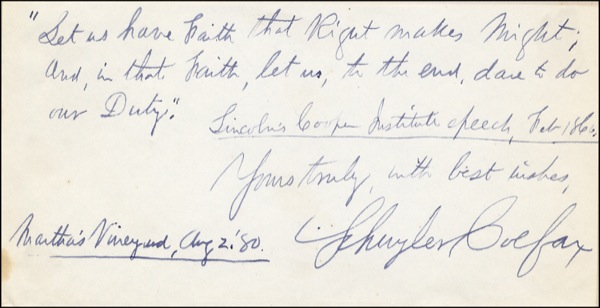 "Let us have Faith that Right makes Might;
And, in that Faith, let us, to the end, dare to do
our Duty".
Lincoln's Cooper Institute speech, Feb 1860.
Yours truly, with best wishes,
Martha's Vineyard, Aug 2. '80. Schuyler Colfax